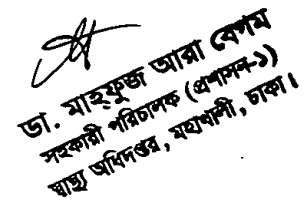 ডা. মাহ্ফুজ আরা বেগম
সহকারী পরিচালক (প্রশাসন-১)
স্বাস্থ্য অধিদপ্তর, মহাখালী, ঢাকা।